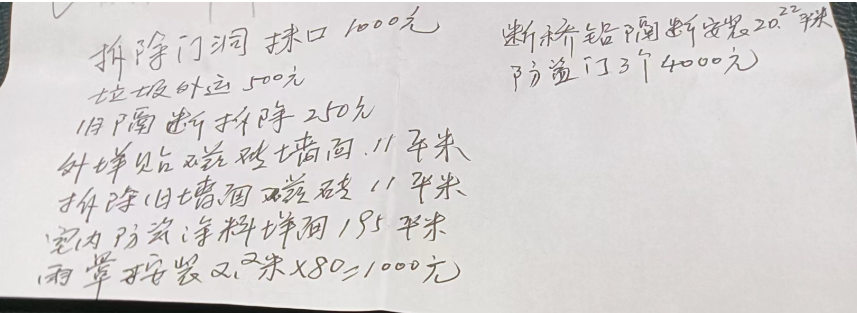 拆除门洞抹口1000元
垃圾外运500元
旧隔断拆除250元
外墙贴磁砖墙面.11平米
拆除旧墙面磁砖11平米
室内防瓷涂料墙面195平米
雨罩安装2.2米×80=1000元
断桥铝隔断安装20.22平米
防盗门3个4000元